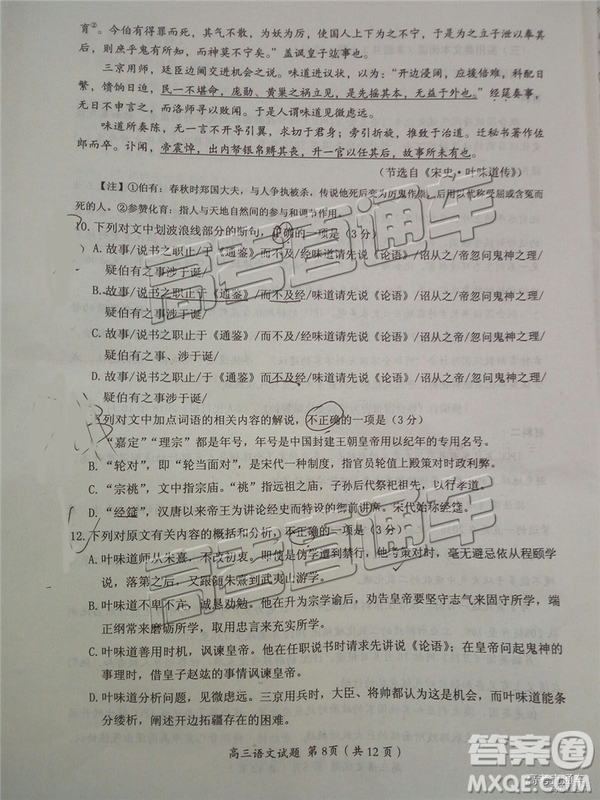 育②。今伯有得罪而死，其气不散，为妖为厉，使国人上下为之不宁，于是为之立子泄以奉其
后，则庶乎鬼有所知，而神莫不宁矣。”盖讽皇子竑事也。
三京用师，廷臣边阃交进机会之说。味道进议状，以为：“开边浸阔，应援倍难，科配日
繁，馈饷日迫，民一不堪命，庞勋、黄巢之祸立见，是先摇其本，无益于外也。”经筵奏事，
无日不申言之，而洛师寻以败闻。于是人谓味道见微虑远。
味道所奏陈，无一言不开导引翼，求切于君身；旁引折旋，推致于治道。迁秘书著作佐
郎而卒。讣闻，帝震悼，出内帑银帛赙其丧，升一官以任其后，故事所未有也。
（节选自《宋史·叶味道传》）
【注】①伯有：春秋时郑国大夫，与人争执被杀，传说他死后变为厉鬼作祟，后用以代称受屈或含冤而
死的人。②参赞化育：指人与天地自然间的参与和调节作用。
10. 下列对文中划波浪线部分的断句，正确的一项是（3 分）
A. 故事/说书之职止于《通鉴》而不及经/味道请先说《论语》/诏从之/帝忽问鬼神之理/
疑伯有之事涉于诞/
B. 故事/说书之职止于《通鉴》/而不及经/味道请先说《论语》/诏从之/帝忽问鬼神之理/
疑伯有之事涉于诞/
C. 故事/说书之职止于《通鉴》/而不及经/味道请先说《论语》/诏从之帝/忽问鬼神之理/
疑伯有之事、涉于诞/
D. 故事/说书之职止/于《通鉴》而不及经/味道请先说《论语》/诏从之帝/忽问鬼神之理/
疑伯有之事涉于诞/
列对文中加点词语的相关内容的解说，不正确的一项是（3 分）
A. “嘉定”“理宗”都是年号，年号是中国封建王朝皇帝用以纪年的专用名号。
B. “轮对”，即“轮当面对”，是宋代一种制度，指官员轮值上殿策对时政利弊。
C. “宗桃”，文中指宗庙。“桃”指远祖之庙，子孙后代祭祀祖先的地方。
D. “经筵”，汉唐以来帝王为讲论经史而特设的御前讲席。宋代始称经筵。
12. 下列对原文有关内容的概括和分析，不正确的一项是（3 分）
A. 叶味道师从朱熹，不改初衷。即使是伪学禁行之时，他考策对时，毫无避忌依从程颐学
说，落第之后，又跟随朱熹到武夷山游学。
B. 叶味道非常卑恭，诚恳劝勉。当升为宗学谕时，劝告皇帝要坚守志气来巩固所学，端
正纲常来磨砺所学，用勇敢言论来充实所学。
C. 叶味道善用时机，讽谏皇帝。他在任职说书时请求先讲说《论语》；在皇帝问起鬼神的
事理时，借皇子赵竑的事情讽谏皇帝。
D. 叶味道分析问题，见微虑远。三京用兵时，大臣、将帅都认为有机会，而叶味道能条
分缕析，阐述开边拓疆存在的困难。
高三语文试题 第 8页（共 12 页）
高考直通车
高考直通车
答案卷